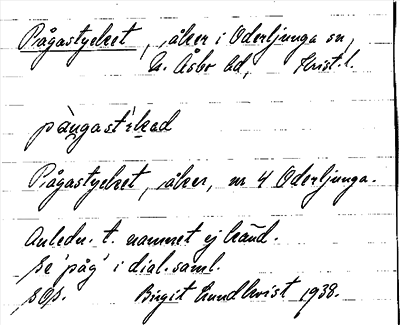 Pågastycket, åker i Oderljunga sn,
N. Åsbo hd, Krist. l.
Pågastycket, åker, nr 4 Oderljunga.
Anledn. t. namnet ej känd.
se 'påg' i dial. saml.
Birgit Lundkvist 1938.